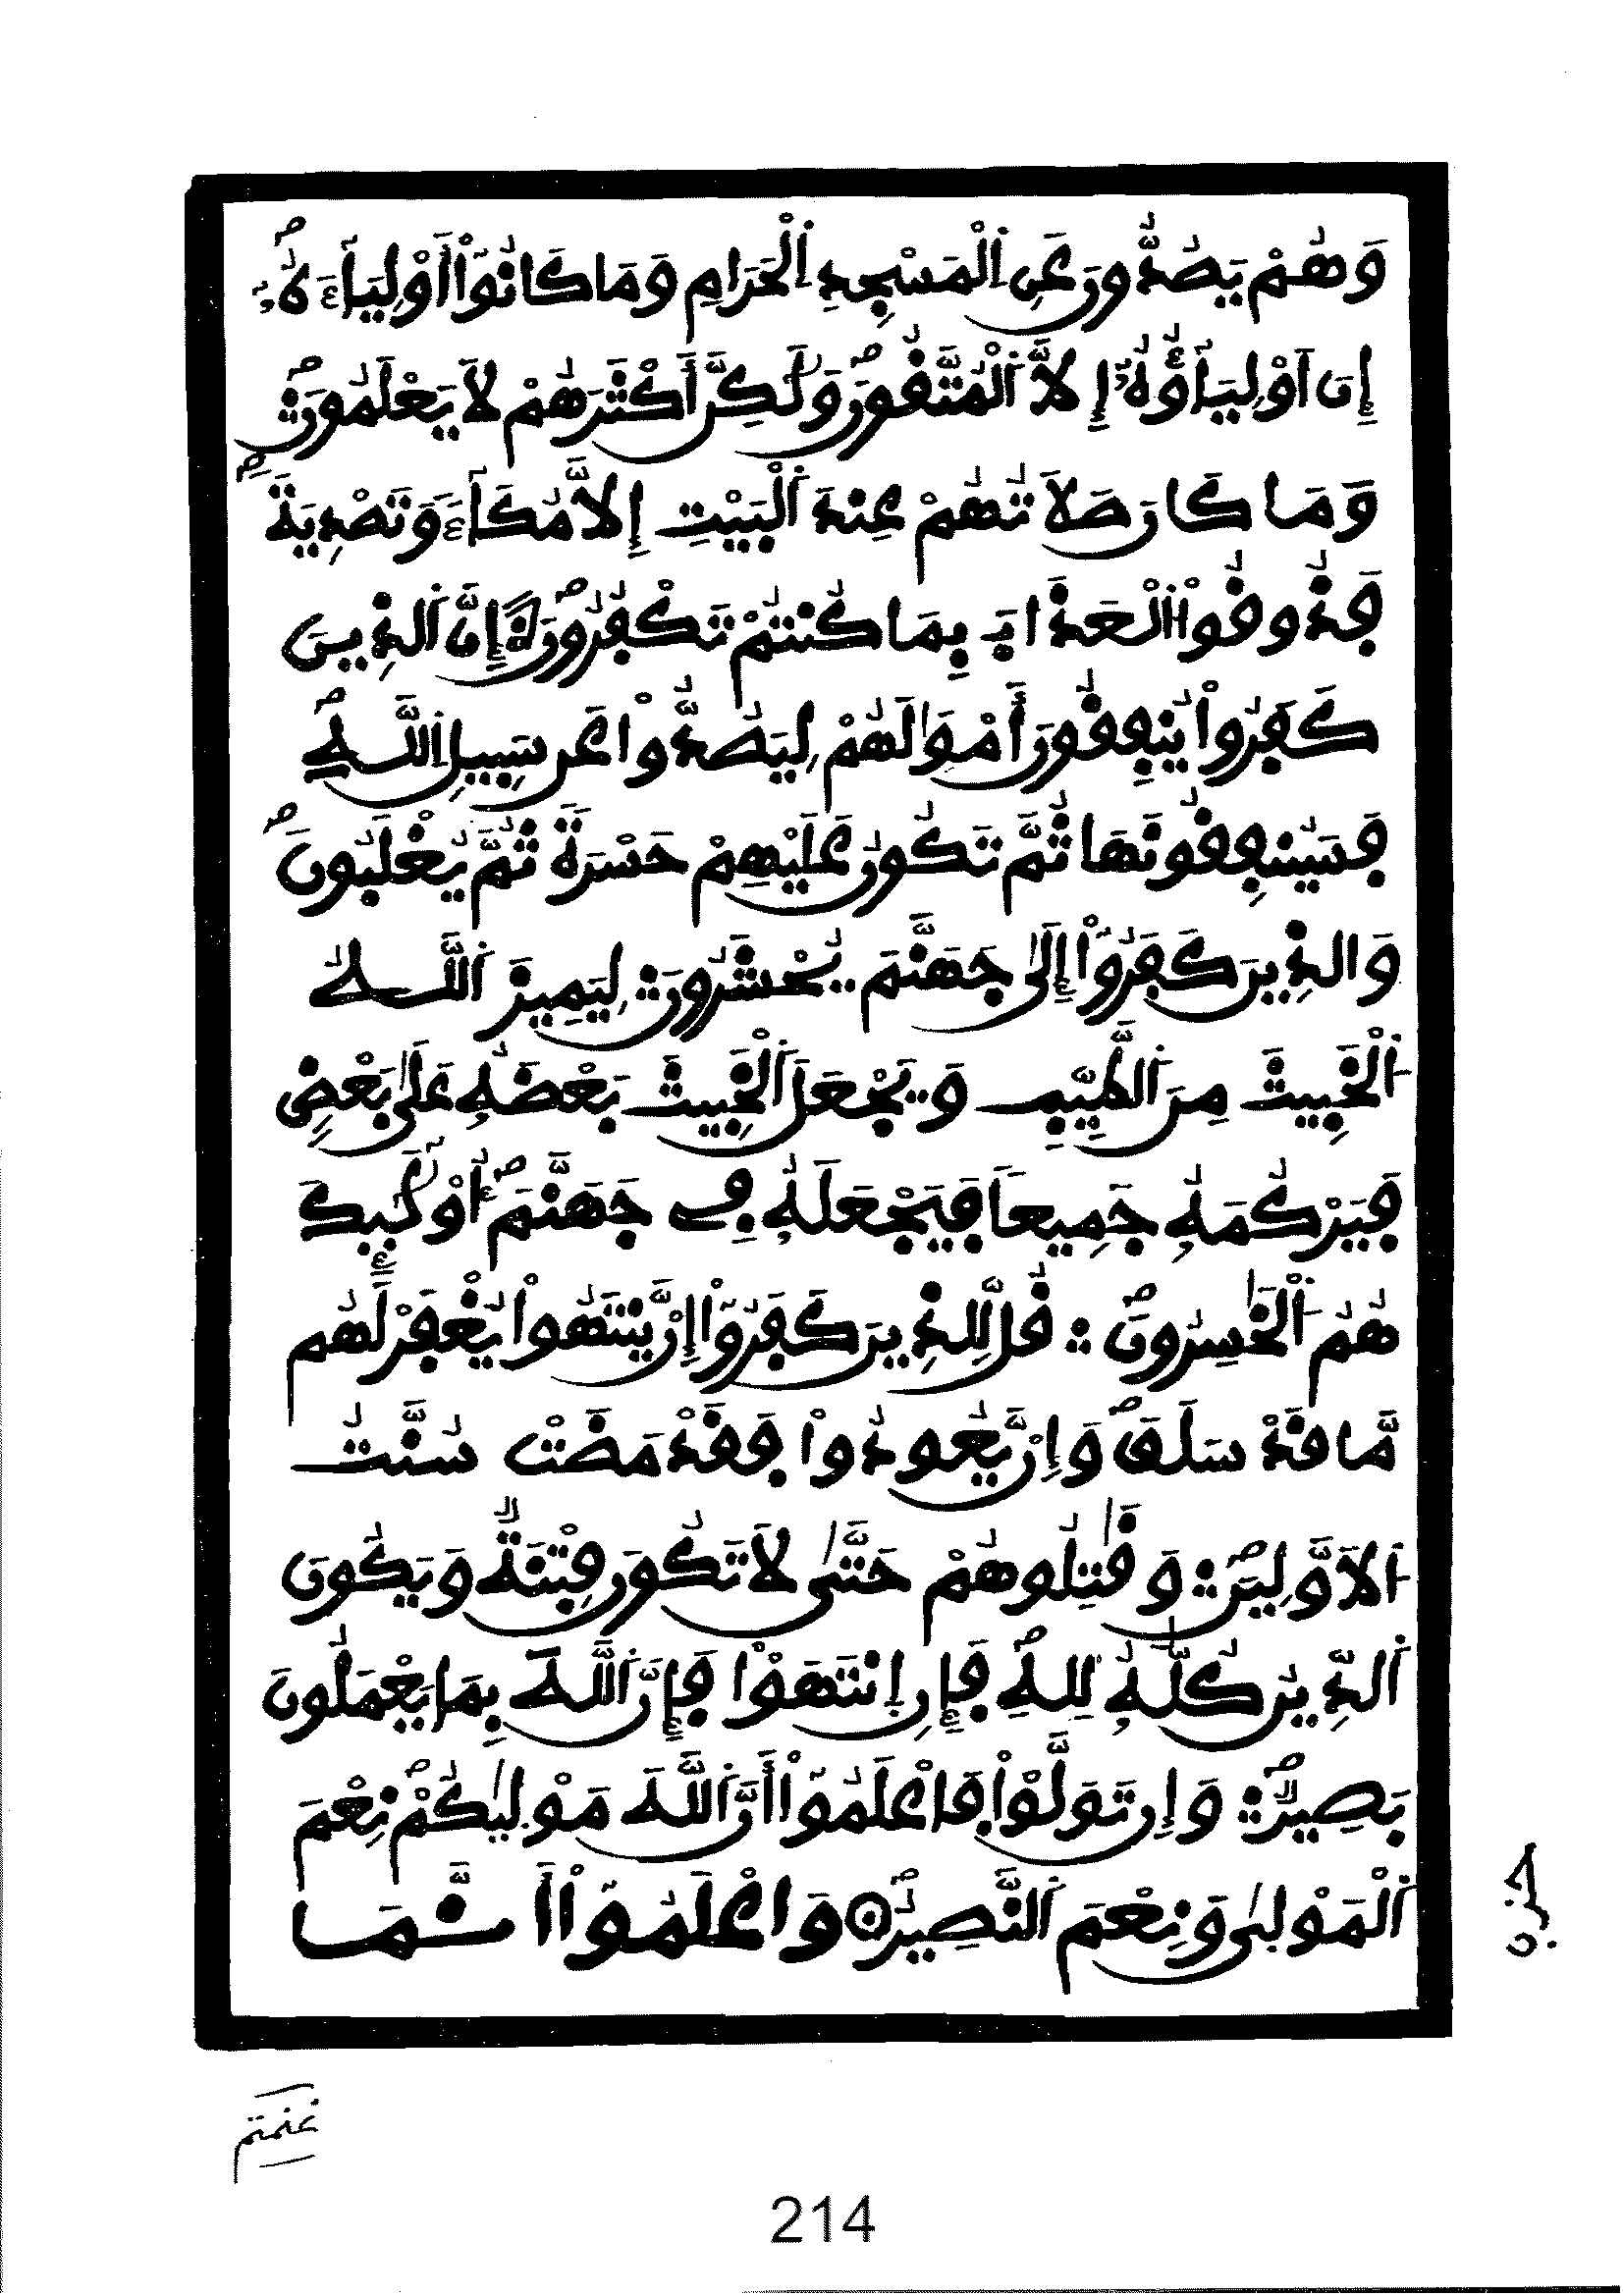 وَهُمْ يَصُدُّونَ عَنِ اِ۬لْمَسْجِدِ اِ۬لْحَرَامِ وَمَا كَانُوٓاْ أَوْلِيَآءَهُۥٓ
إِنَ اَوْلِيَآؤُهُۥٓ إِلَّا اَ۬لْمُتَّقُونَ وَلَٰكِنَّ أَكْثَرَهُمْ لَا يَعْلَمُونَ
وَمَا كَانَ صَلَاتُهُمْ عِندَ اَ۬لْبَيْتِ إِلَّا مُكَآءٗ وَتَصْدِيَةٗ
فَذُوقُواْ اُ۬لْعَذَابَ بِمَا كُنتُمْ تَكْفُرُونَ إِنَّ اَ۬لذِينَ
كَفَرُواْ يُنفِقُونَ أَمْوَٰلَهُمْ لِيَصُدُّواْ عَن سَبِيلِ اِ۬للَّهِ
فَسَيُنفِقُونَهَا ثُمَّ تَكُونُ عَلَيْهِمْ حَسْرَةٗ ثُمَّ يُغْلَبُونَ
وَالذِينَ كَفَرُوٓاْ إِلَىٰ جَهَنَّمَ يُحْشَرُونَ لِيَمِيزَ اَ۬للَّهُ
اُ۬لْخَبِيثَ مِنَ اَ۬لطَّيِّبِ وَيَجْعَلَ اَ۬لْخَبِيثَ بَعْضَهُۥ عَلَىٰ بَعْضٖ
فَيَرْكُمَهُۥ جَمِيعاٗ فَيَجْعَلَهُۥ فِے جَهَنَّمَ أُوْلَٰٓئِكَ
هُمُ اُ۬لْخَٰسِرُونَ قُل لِّلذِينَ كَفَرُوٓاْ إِنْ يَّنتَهُواْ يُغْفَرْ لَهُم
مَّا قَدْ سَلَفَ وَإِنْ يَّعُودُواْ فَقَدْ مَضَتْ سُنَّتُ
اُ۬لَاوَّلِينَ وَقَٰتِلُوهُمْ حَتَّىٰ لَا تَكُونَ فِتْنَةٞ وَيَكُونَ
اَ۬لدِّينُ كُلُّهُۥ لِلهِ فَإِنِ اِنتَهَوْاْ فَإِنَّ اَ۬للَّهَ بِمَا يَعْمَلُونَ
بَصِيرٞ وَإِن تَوَلَّوْاْ فَاعْلَمُوٓاْ أَنَّ اَ۬للَّهَ مَوْلَىٰكُمْ نِعْمَ
اَ۬لْمَوْلَىٰ وَنِعْمَ اَ۬لنَّصِيرُ وَاعْلَمُوٓاْ أَنَّمَا
حزب
غنمتم
214